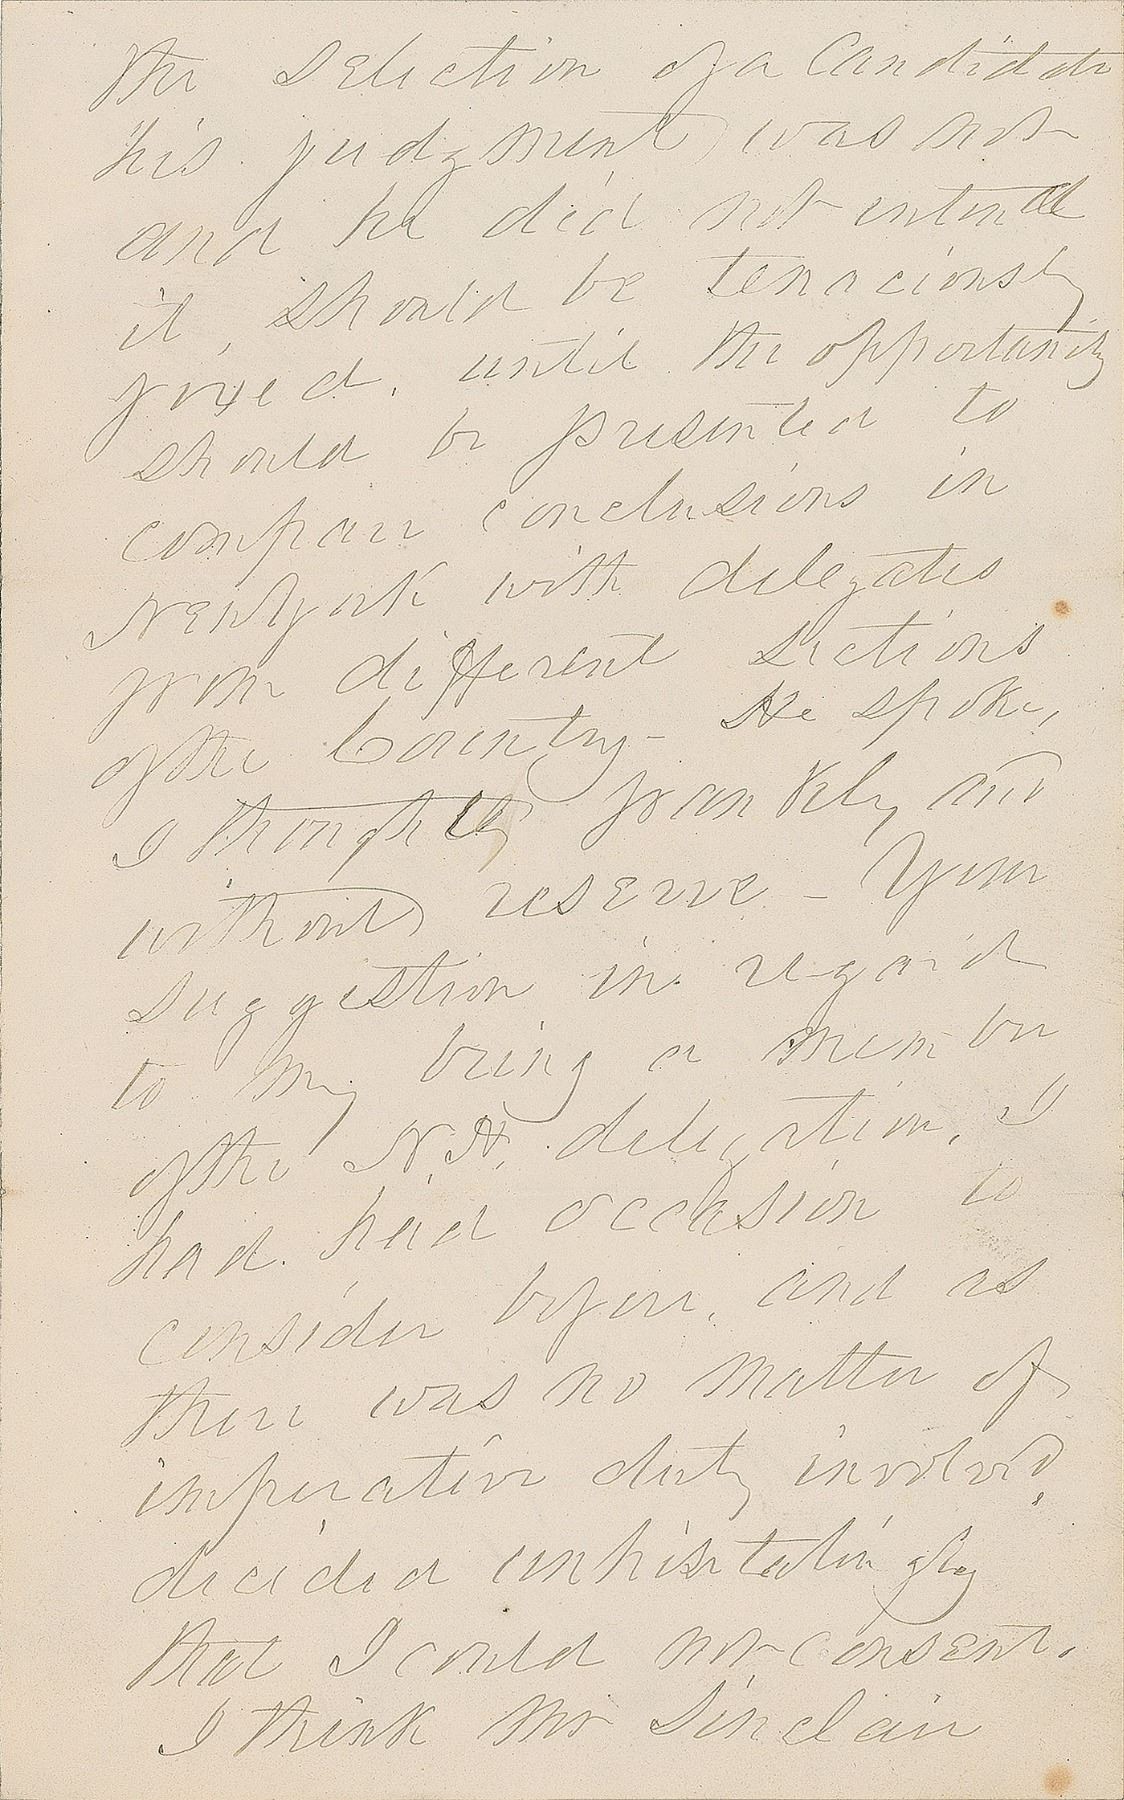 the selection of a Candidate
his judgment was not
and he did not intend
it, should be tenaciously
fixed, until the opportunity
should be presented to
compare conclusions in
New York with delegates
from different sections
of the Country - He spoke,
I thought frankly and
without reserve - Your
suggestion in regard
to my being a member
of the N.H. delegation, I
had had occasion to
consider before, and as
there was no matter of
imperative duty involved,
decided unhesitatingly
that I could not consent.
I think Mr Sinclair